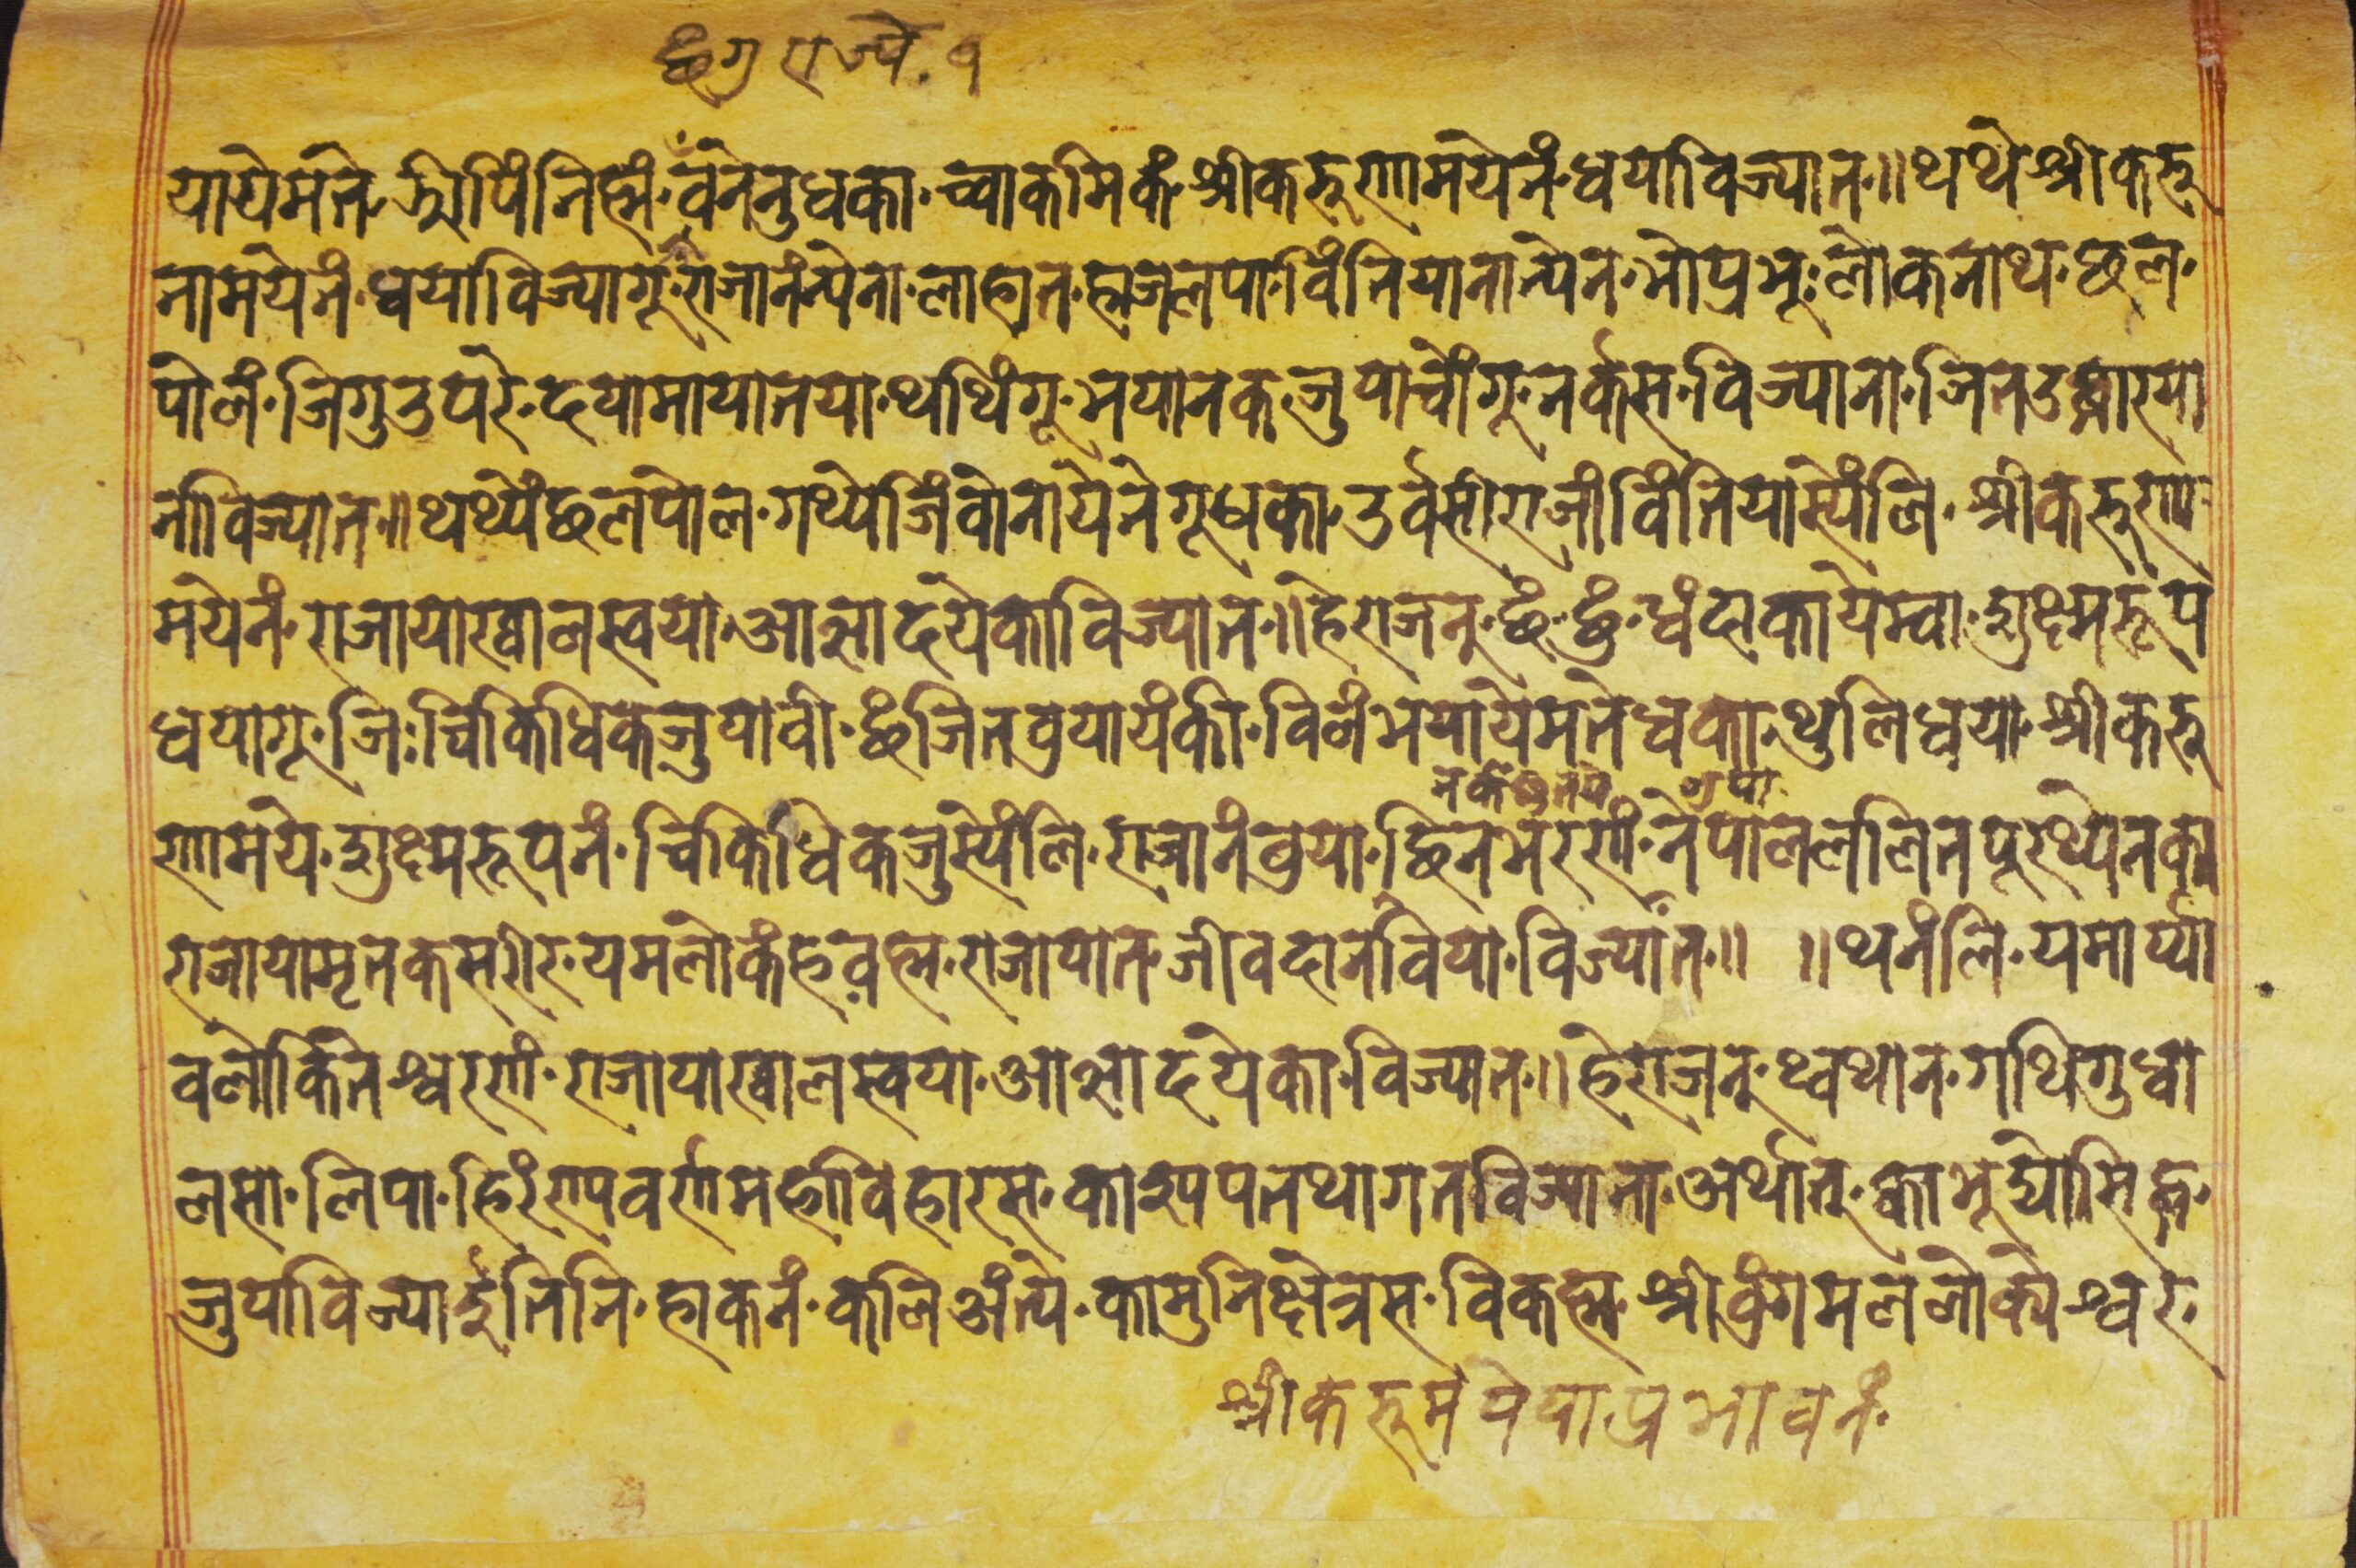 यायेमते पिंनिह्मं वनेनुधका च्वाकमिकं श्रीकरुणामयेनं धयाविज्यात ॥ थथे श्रीकरु
नामयेनं धयाविज्यागू राजानंन्येना लाहात ह्वाजलपा विंतियानान्येन भोप्रभूः लोकनाथ छल
पोलं जिगु उपरे दयामायातया थथिंगू भयानक जुयाचोंगू नर्कस विज्याना जित उद्धारया
नाविज्यात ॥ थथ्यें छलपोल गथ्ये जिं वोनायेनेगू धका उर्वसीराजां विंतियास्येंलि श्रीकरुणा
मयेनं राजायाख्वालस्वया आज्ञादयेकाविज्यात ॥ हेराजन् छं छुं धंदाकायेम्वा शुक्ष्मरूप
धयागू जिः चिकिधिकजुयावी छं जित वुयायंकी विलंभयायेमते धका थुलिधया श्रीकरु
नकं
णामये शुक्ष्मरूपनं चिकिधिकजुस्येंलि राजानंवुया छिनभरसां नेपालललितपूरथ्येनका
राजायामृतकसरीर यमलोकं हवह्म राजायात जीवदानविया विज्यात ॥ ॥ थनंलि यमार्य्या
वलोकितेश्वरसां राजायाख्वालस्वया आज्ञादयेका विज्यात ॥ हेराजन् थ्वथान गथिंगुधा
लसा लिपा हिरंण्यवर्णमहाविहारस काश्यपतथागतविज्याना अर्थात् क्वाभूद्योसिह्म
जुयाविज्याईतिनि हाकनं कलिअंत्ये कामुनिक्षेत्रस विकह्म श्रीवुंगमललोक्येश्वर
श्रीकरुमयेया प्रभावनं